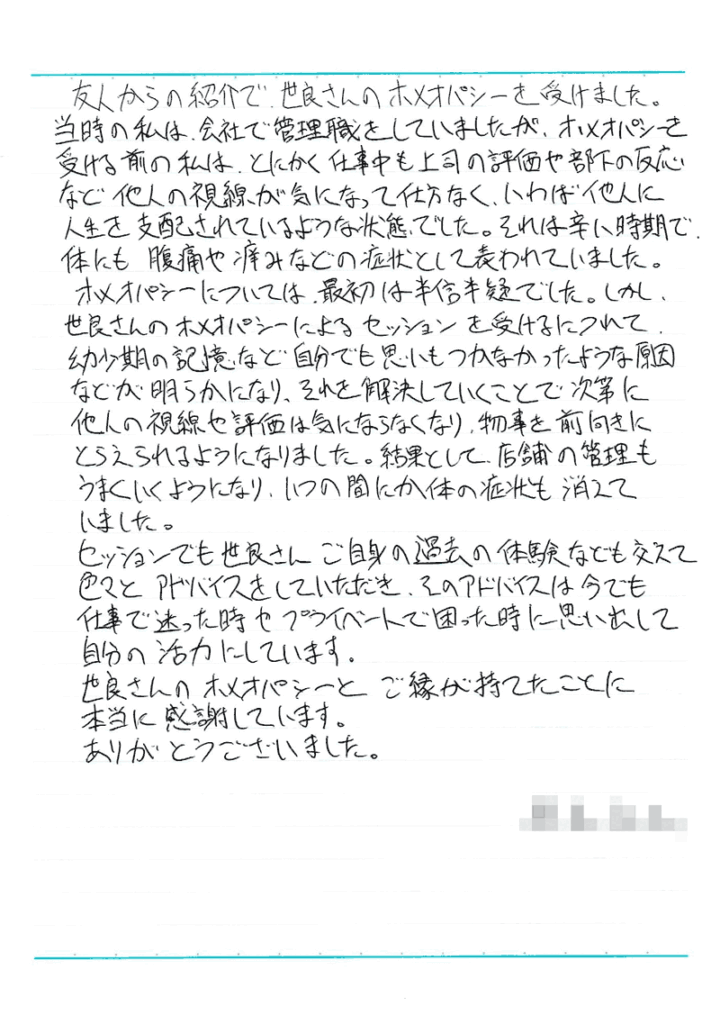 友人からの紹介で、世良さんのホメオパシーを受けました。
当時の私は、会社で管理職をしていましたが、ホメオパシーを
受ける前の私は、とにかく仕事中も上司の評価や部下の反応
など他人の視線が気になって仕方なく、いわば他人に
人生を支配されているような状態でした。それは辛い時期で、
体にも腹痛や痺みなどの症状として表われていました。
ホメオパシーについては、最初は半信半疑でした。しかし、
世良さんのホメオパシーによるセッションを受けるにつれて、
幼少期の記憶など自分でも思いもつかなかったような原因
などが明らかになり、それを解決していくことで次第に
他人の視線や評価は気にならなくなり、物事を前向きに
とらえられるようになりました。結果として、店舗の管理も
うまくいくようになり、いつの間にか体の症状も消えて
いました。
セッションでも世良さんご自身の過去の体験なども交えて
色々とアドバイスをしていただき、そのアドバイスは今でも
仕事で迷った時やプライベートで困った時に思い出して
自分の活力にしています。
世良さんのホメオパシーとご縁が持てたことに
本当に感謝しています。
ありがとうございました。